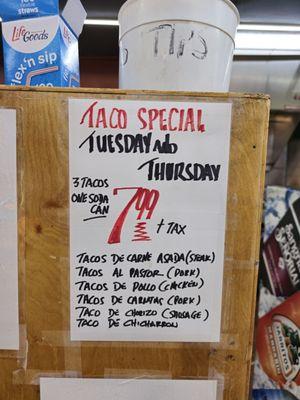 flexible
straws
Life
Goods
flex 'n sip
TIPS
TACO SPECIAL
TUESDAY AND
THURSDAY
3 TACOS
ONE SODA
CAN
7.99
+ TAX
TACOS DE CARNE ASADA (STEAK)
TACOS AL PASTOR (PORK)
TACOS DE POLLO (CHICKEN)
TACOS DE CARNITAS (PORK)
TACO DE CHORIZO (SAUSAGE)
TACO DE CHICHARRON
JARRITOS